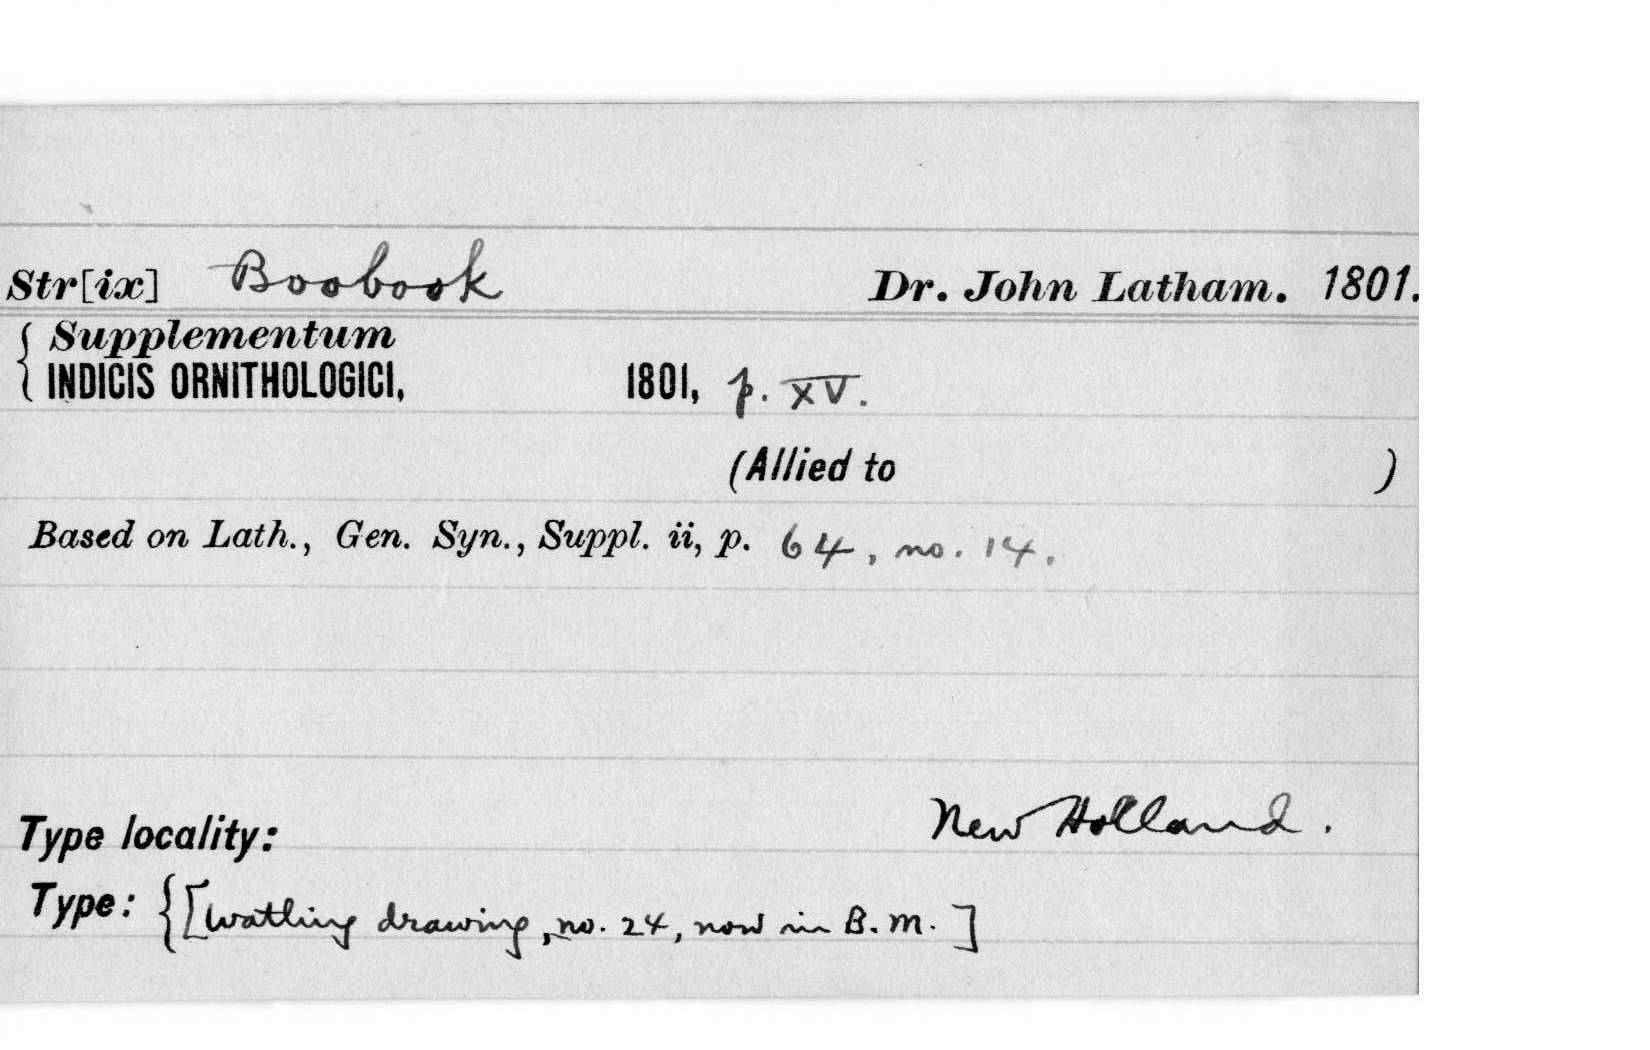 Str[ix] Boobook Dr. John Latham. 1801.
{ Supplementum
INDICIS ORNITHOLOGICI, 1801, p. XV.
(Allied to )
Based on Lath., Gen. Syn., Suppl. ii, p. 64, no. 14.
Type locality: New Holland.
Type: {[Watling drawing, no. 24, now in B.M.]